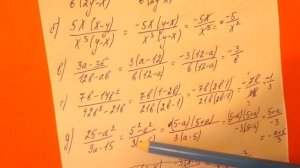 б) 5x(x-y) / x³(y-x) = -5x(y-x) / x³(y-x) = -5x / x³ = -5 / x²
в) 3a-36 / 12b-ab = 3(a-12) / b(12-a) = -3(12-a) / b(12-a) = -3 / b
г) 7b-14b² / 42b²-21b = 7b(1-2b) / 21b(2b-1) = -7b(2b-1) / 21b(2b-1)
д) 25-a² / 3a-15 = 5²-a² / 3( = (5-a)(5+a) / 3(a-5)